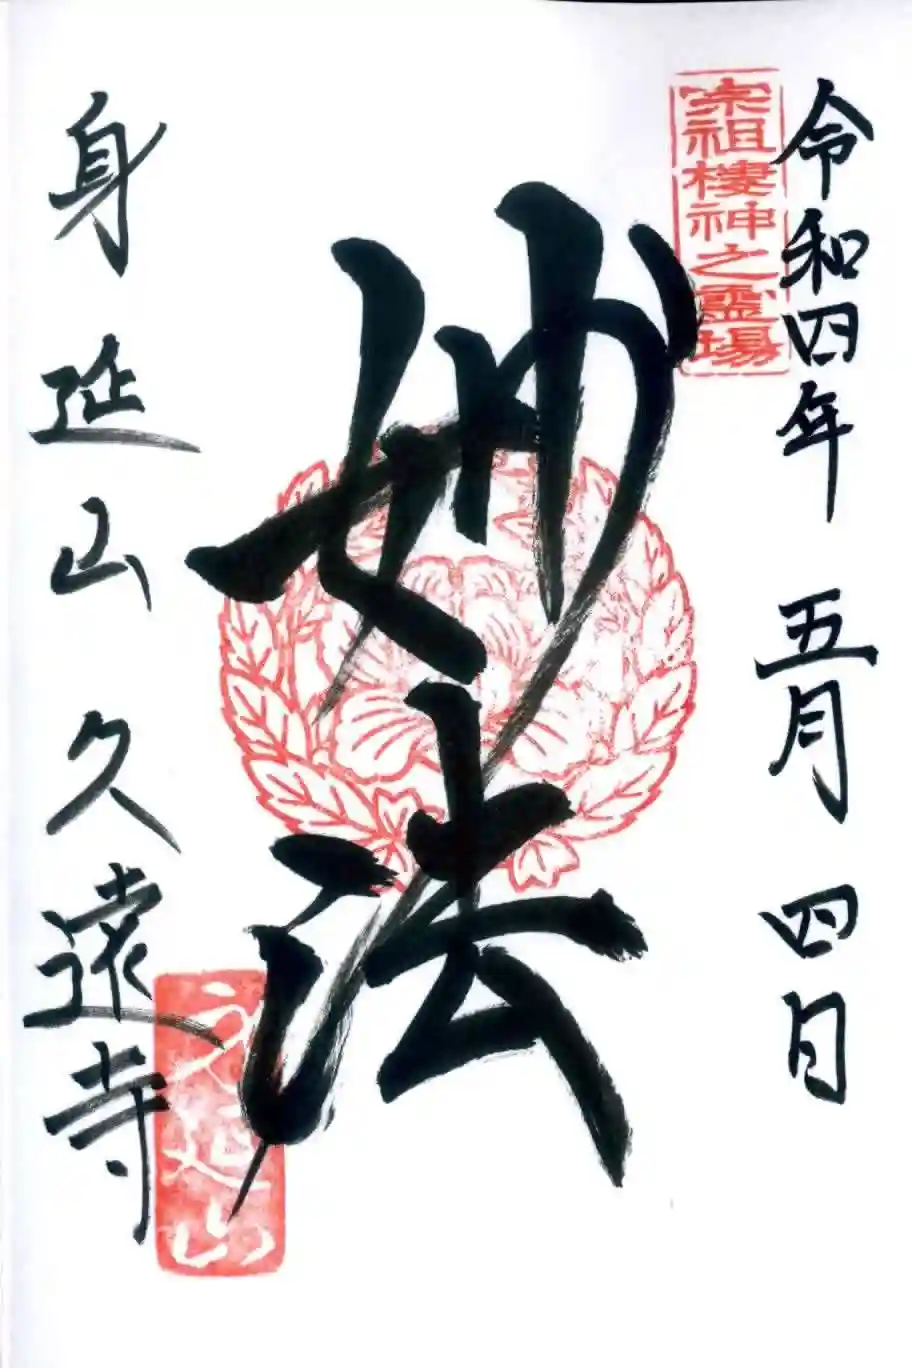 令和四年 五月 四日
宗祖棲神之霊場
妙法
身延山久遠寺
身延山